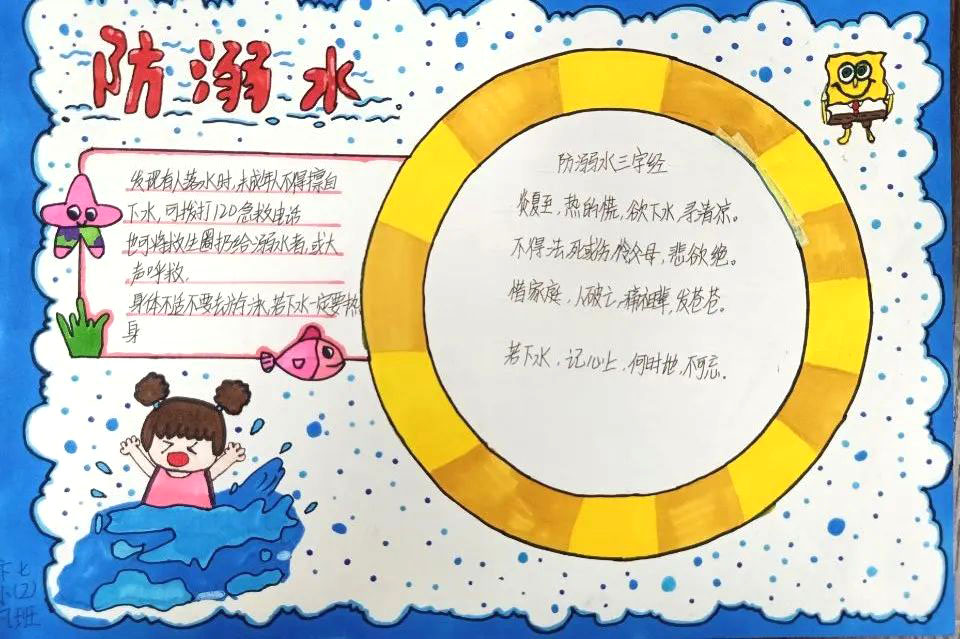 防溺水
发现有人落水时,未成年人不得擅自
下水,可拨打120急救电话
也可将救生圈扔给溺水者,或大
声呼救.
身体不适不要去游泳,若下水一定要热
身
防溺水三字经
炎夏至,热的慌,欲下水,寻清凉。
不得法,死或伤,怜父母,悲欲绝。
惜家庭,人破亡,痛祖辈,发苍苍。
若下水,记心上,何时地,不可忘.
(2)
班